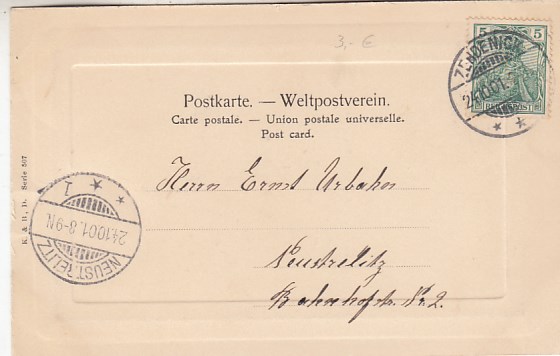 3,- €
5 5
REICHSPOST
ZEHDENICK
24.10.01
Postkarte. — Weltpostverein.
Carte postale. — Union postale universelle.
Post card.
Herrn Ernst Urbahn
Neustrelitz
Bahnhofstr. Nr. 2.
NEUSTRELITZ
24.10.01.8-9N.
1
K. & B., D. Serie 567